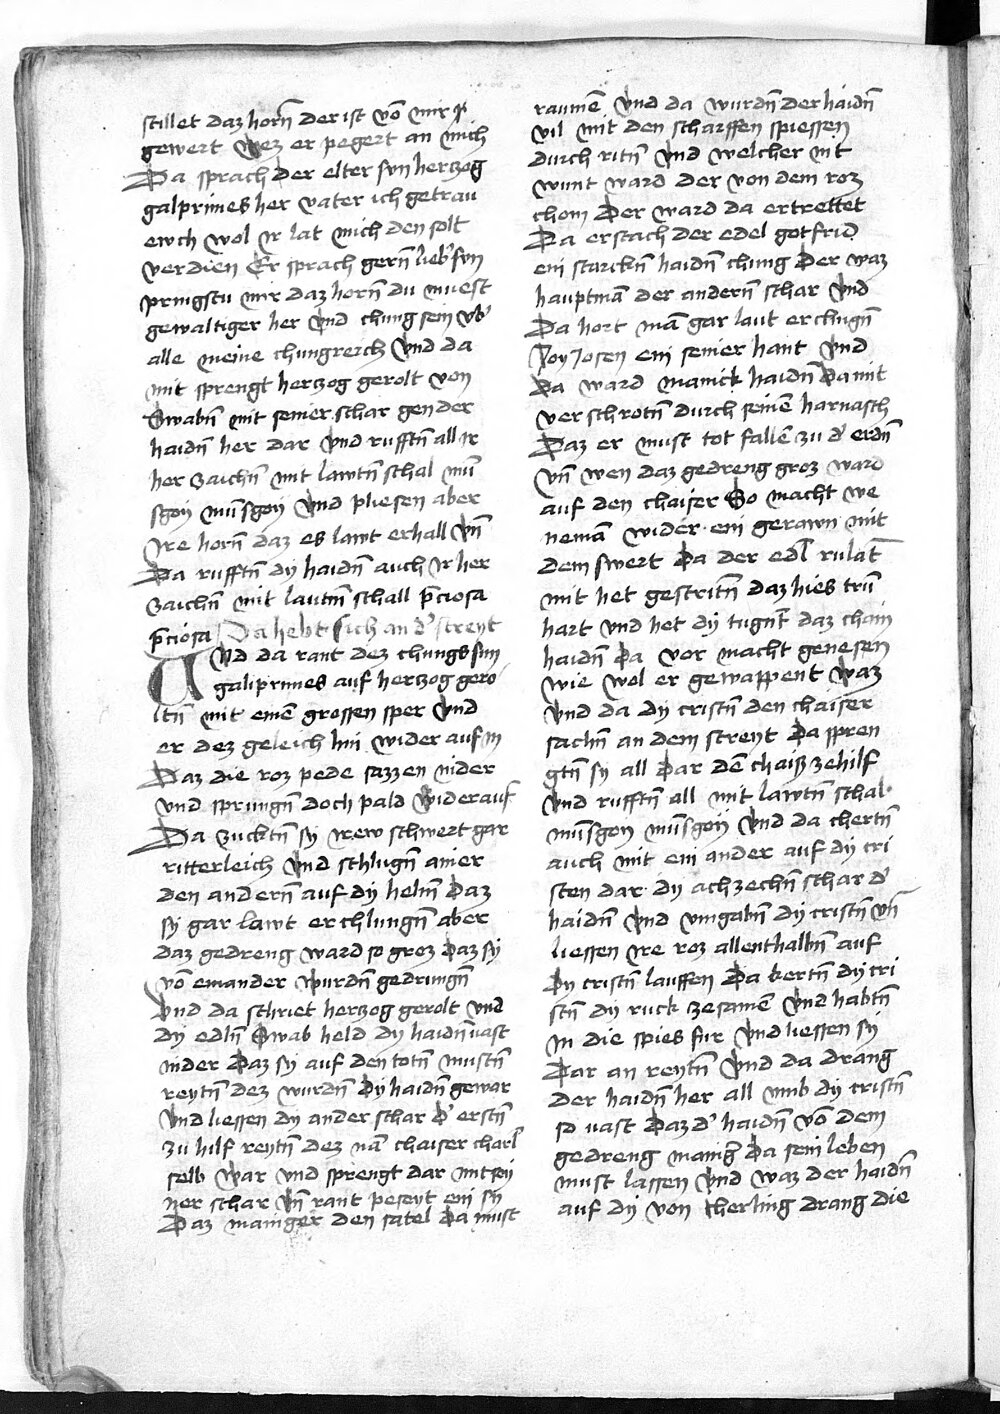 stillet daz horñ der ist võ mir
gewert wez er pegert an mich
Da sprach der elter sun hertzog
galprimes her vater ich getrau
ewch wol ir lat mich den solt
verdien Er sprach gerñ lieb' sun
pringstu mir daz horñ du muest
gewaltiger her vnd chung sein vb'
alle meine chungreich Vnd da
mit sprengt hertzog gerolt von
Swabñ mit seinier schar gen der
haidñ her dar vnd rufftñ all ir
her zaichñ mit lawtñ schal mũ
sgoy mũsgoy Vnd pliesen aber
Ire horñ daz es lawt erhall Vñ
Da rufftñ dy haidñ auch ir her
zaichñ mit lautñ schall p̃ciosa
p̃ciosa Da hebt sich an d' streyt
Vnd da rant dez chungs sun
galiprimes auf hertzog gero
ltñ mit einẽ grossen sper Vnd
er dez geleich hin wider auf in
Daz die roz pede sazzen nider
vnd sprungñ doch pald Wider auf
Da zucktñ sy irew schwert gar
ritterleich Vnd schlugñ ainer
den anderñ auf dy helm̃ Daz
sy gar lawt erchlungñ aber
daz gedreng ward so groz Daz sy
võ einander Wurdñ gedrungñ
Vnd da schriet hertzog gerolt vnd
dy edlñ Swab held dy haidñ vast
nider Daz sy auf den totñ mustñ
reytñ dez wurdñ Dy haidñ gewar
Vnd liessen dy ander schar d' erstñ
zu hilf reytñ dez nã chaiser charl
selb War vnd sprengt dar mit sey
ner schar Vñ rant peseyt ein sy
Daz maniger den satel Da must
raumẽ Vnd da wurdñ der haidñ
vil mit den scharffen spiessen
durch ritñ Vnd welcher nit
wunt ward der von dem roz
chom Der ward da ertrettet
Da erstach der edel gotfrid
ein starckñ haidñ chung Der waz
hauptmã der anderñ schar Vnd
Da hort mã gar laut erchlugñ
Joyiosen ein seinier hant Vnd
Da ward manick haidñ Da mit
verschrotñ durch seinẽ harnasch
Daz er must tot fallẽ zu d' erdñ
Vñ wen daz gedreng groz ward
auf den chaiser So macht we
nemã wider ein gerawn mit
dem swert Da der edl rulãt
mit het gestritñ daz hies trũ
hart vnd het dy tugnt daz chain
haidñ Da vor macht genesen
wie wol er gewappent Waz
Vnd da dy cristñ den chaiser
sachñ an dem streyt Da spren
gtñ sy all Dar dẽ chaisz ze hilf
Vnd rufftñ all mit lawtñ schal
mũsgoy mũsgoy Vnd da chertñ
auch mit ein ander auf dy cri
sten dar dy achzechñ schar d'
haidñ Vnd vmgabñ dy cristñ Vñ
liessen Ire roz allenthalbñ auf
Dy cristñ lauffen Da kertñ dy cri
stñ dy ruck zesamẽ Vnd habtñ
In die spies fur Vnd liessen sy
Dar an reytñ Vnd da drang
der haidñ her all vmb dy cristñ
so vast Daz d' haidñ võ dem
gedreng manig Da sein leben
must lassen Vnd waz der haidñ
auf dy von cherling drang die